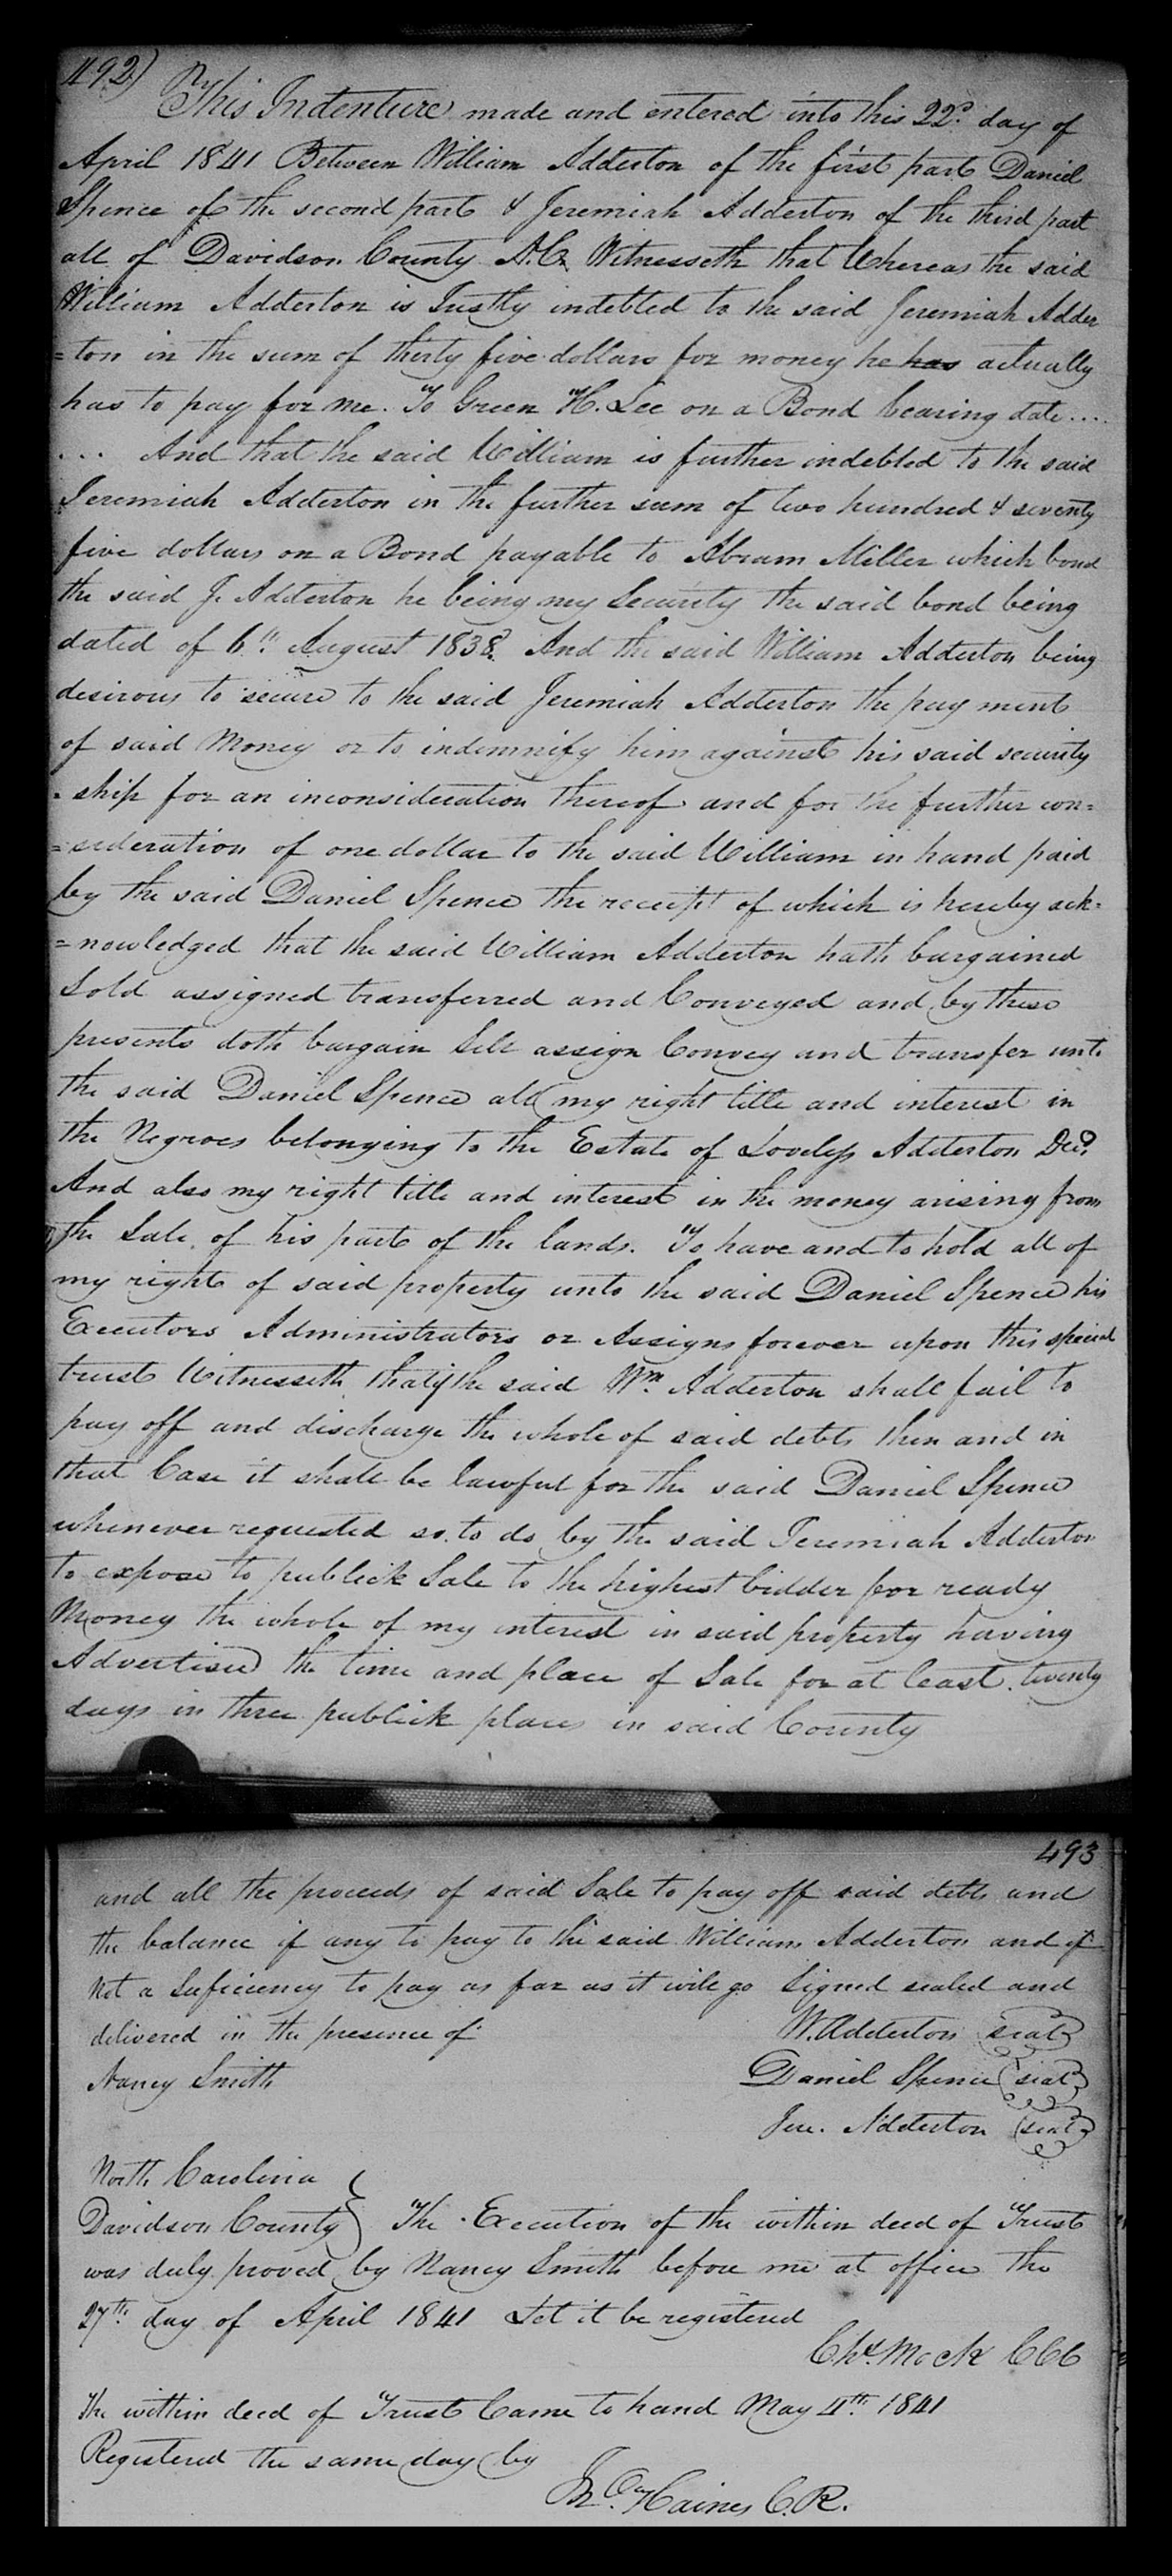 492)
This Indenture made and entered into this 22d. day of
April 1841 Between William Adderton of the first part Daniel
Spence of the second part & Jeremiah Adderton of the third part
all of Davidson County N.C. Witnesseth that Whereas the said
William Adderton is Justly indebted to the said Jeremiah Adder
=ton in the sum of thirty five dollars for money he has actually
has to pay for me. To Green H. Lee on a Bond bearing date....
... And that the said William is further indebted to the said
Jeremiah Adderton in the further sum of two hundred & seventy
five dollars on a Bond payable to Abram Miller which bond
the said J. Adderton he being my Security the said bond being
dated of 6th. August 1838. And the said William Adderton being
desirous to secure to the said Jeremiah Adderton the pay ment
of said Money or to indemnify him against his said security
=ship for an inconsideration thereof and for the further con=
=sideration of one dollar to the said William in hand paid
by the said Daniel Spence the receipt of which is hereby ack=
=nowledged that the said William Adderton hath bargained
Sold assigned transferred and Conveyed and by these
presents doth bargain Sell assign Convey and transfer unto
the said Daniel Spence all my right title and interest in
the Negroes belonging to the Estate of Loveless Adderton Decd.
And also my right title and interest in the money arising from
the Sale of his part of the lands. To have and to hold all of
my right of said property unto the said Daniel Spence his
Executors Administrators or Assigns forever upon this special
trust Witnesseth that if the said Wm. Adderton shall fail to
pay off and discharge the whole of said debts then and in
that Case it shall be lawful for the said Daniel Spence
whenever requested so to do by the said Jeremiah Adderton
to expose to publick Sale to the highest bidder for ready
Money the whole of my interest in said property having
Advertised the time and place of Sale for at least twenty
days in three publick places in said County
493
and all the proceeds of said Sale to pay off said debts and
the balance if any to pay to the said William Adderton and if
Not a Suficiency to pay as far as it will go Signed sealed and
delivered in the presence of W. Adderton (seal)
Nancy Smith Daniel Spence (seal)
Jere. Adderton (seal)
North Carolina
Davidson County } The Execution of the within deed of Trust
was duly proved by Nancy Smith before me at office the
27th. day of April 1841 Let it be registered
Chs. Mock CCC
The within deed of Trust Came to hand May 4th. 1841
Registered the same day by
Jno. Haines C.R.